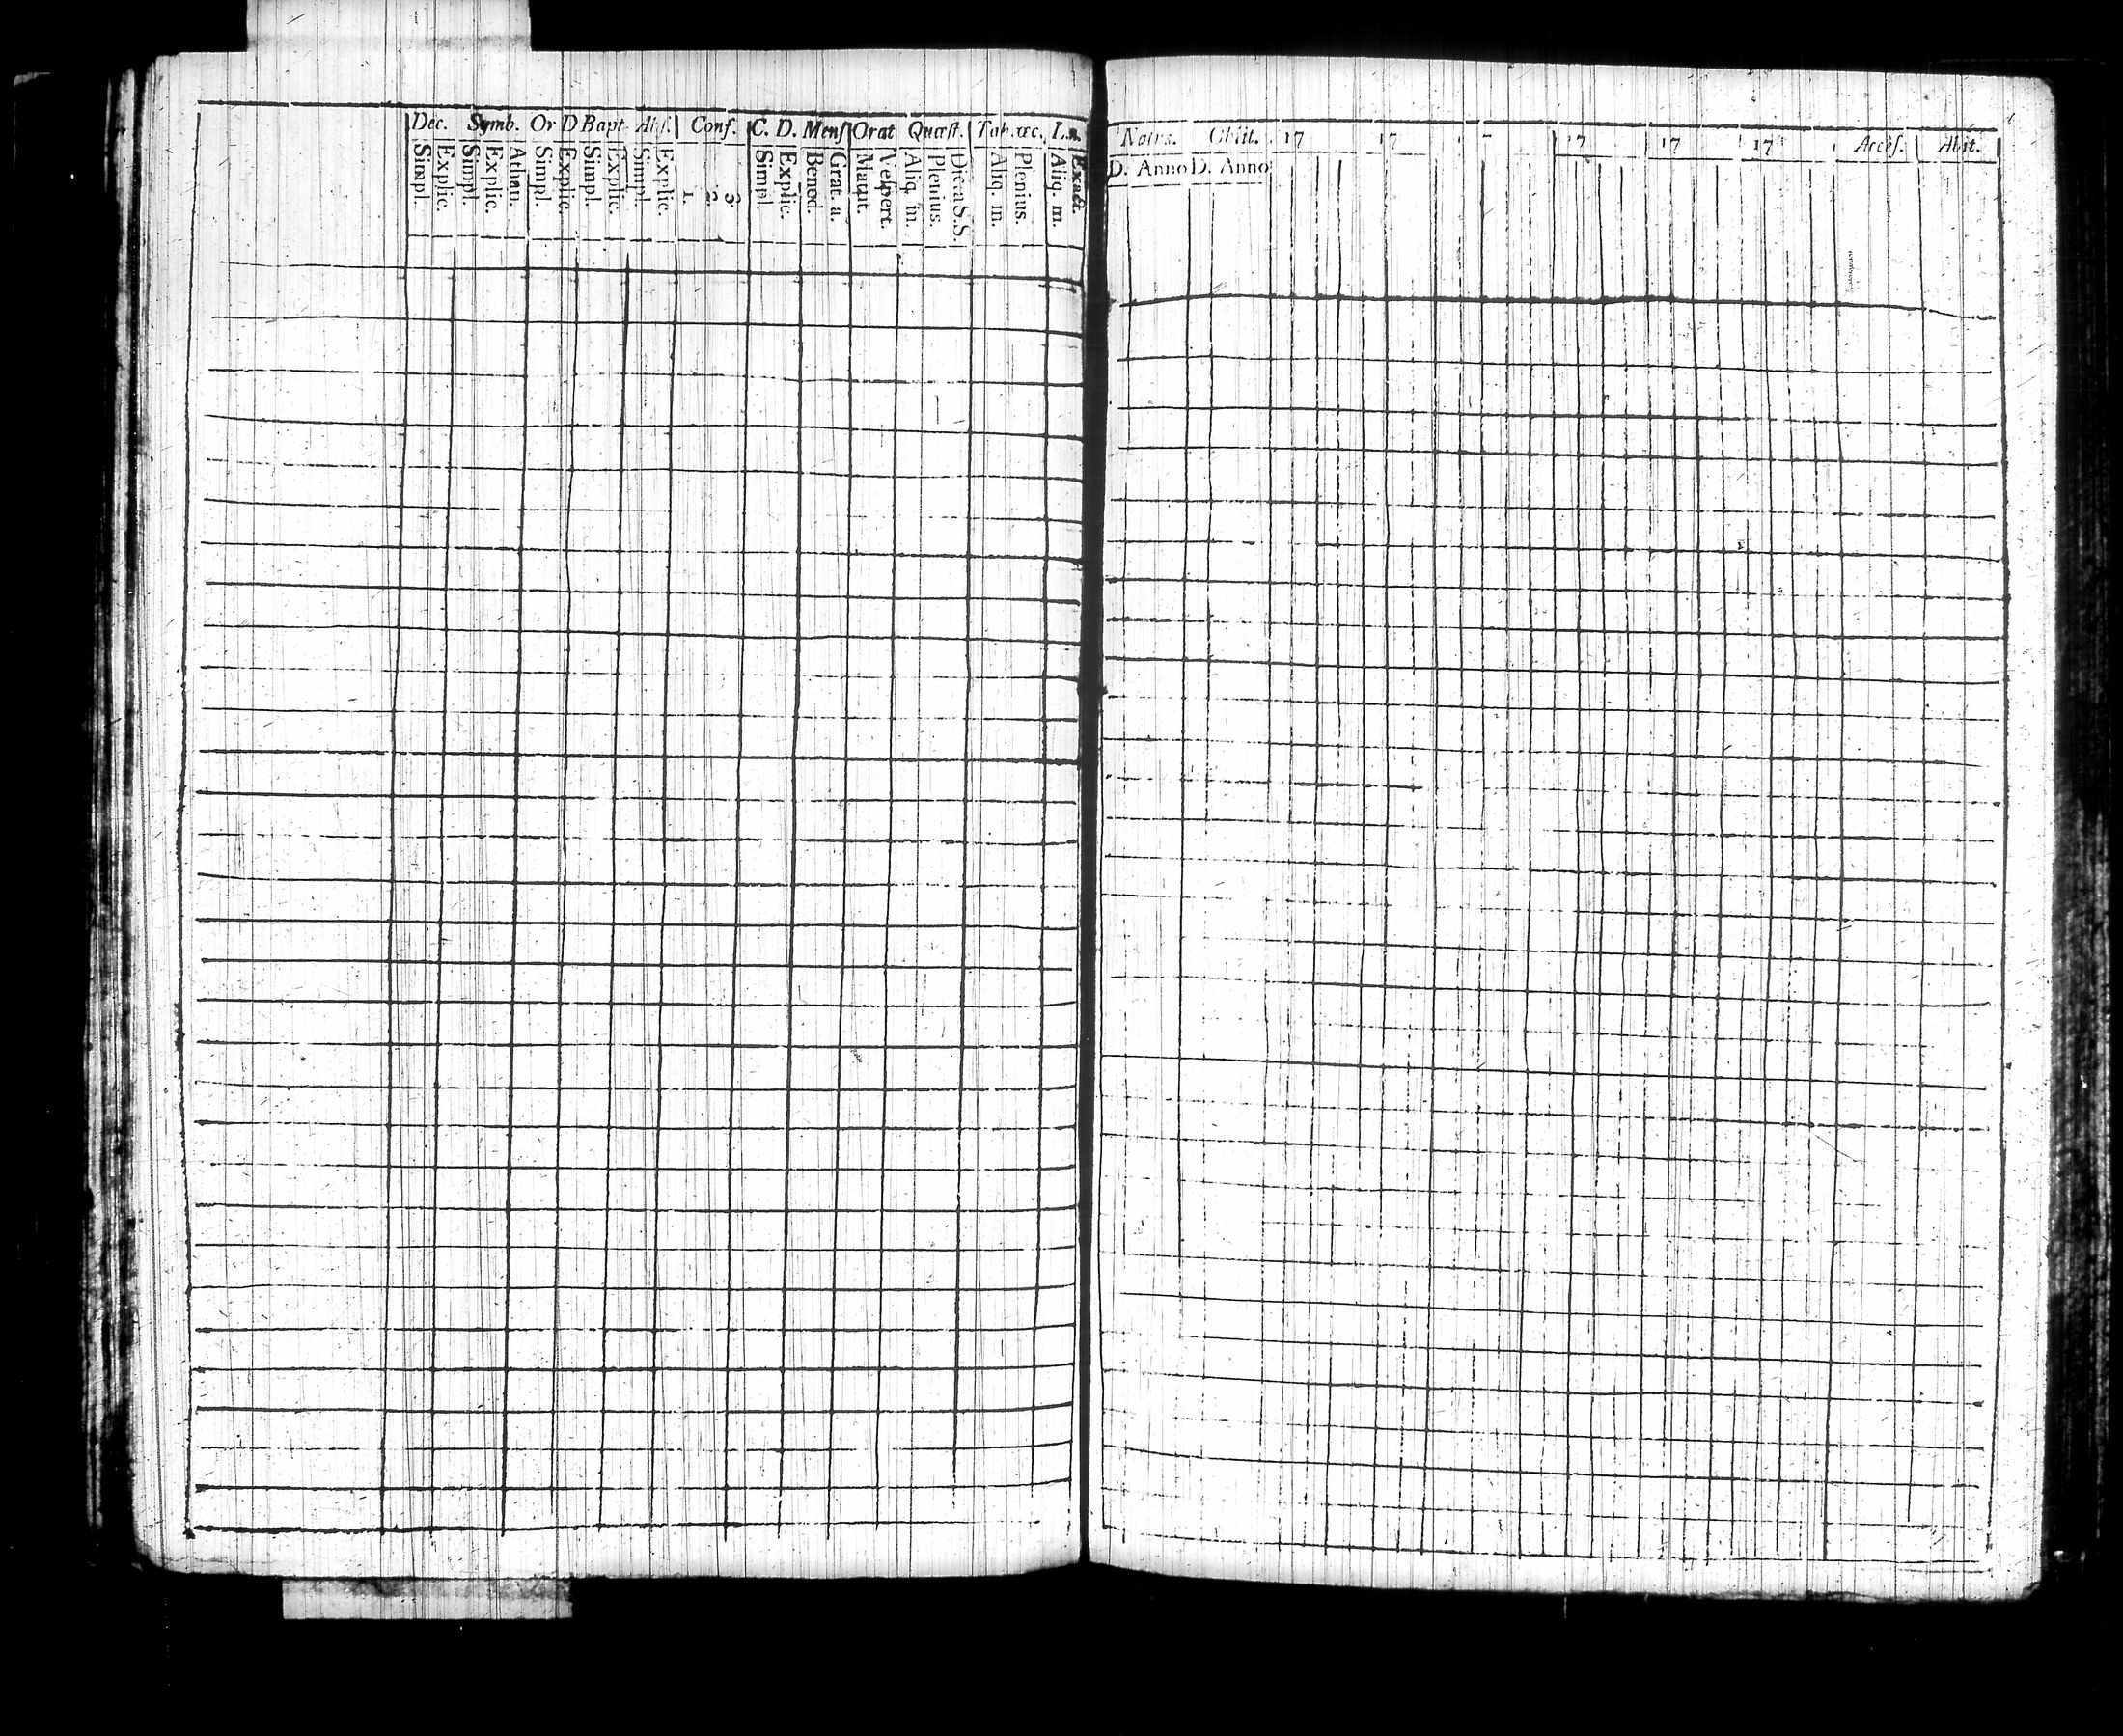 Dec. Symb. Or D Bapt. Abſ. Conf. C. D. Menſ Orat Quæſt. Tab. œc. L.n.
Simpl. Explic. Simpl. Explic. Athan. Simpl. Explic. Simpl. Explic. Simpl. Explic. 1. 2. 3. Simpl. Explic. Bened. Grat. a. Matut. Veſpert. Aliq. m. Plenius. Dicta S.S. Aliq. m. Plenius. Aliq. m. Exact.
Natus. Obiit. 17 17 17 17 17 17 Acceſ. Abit.
D. Anno D. Anno